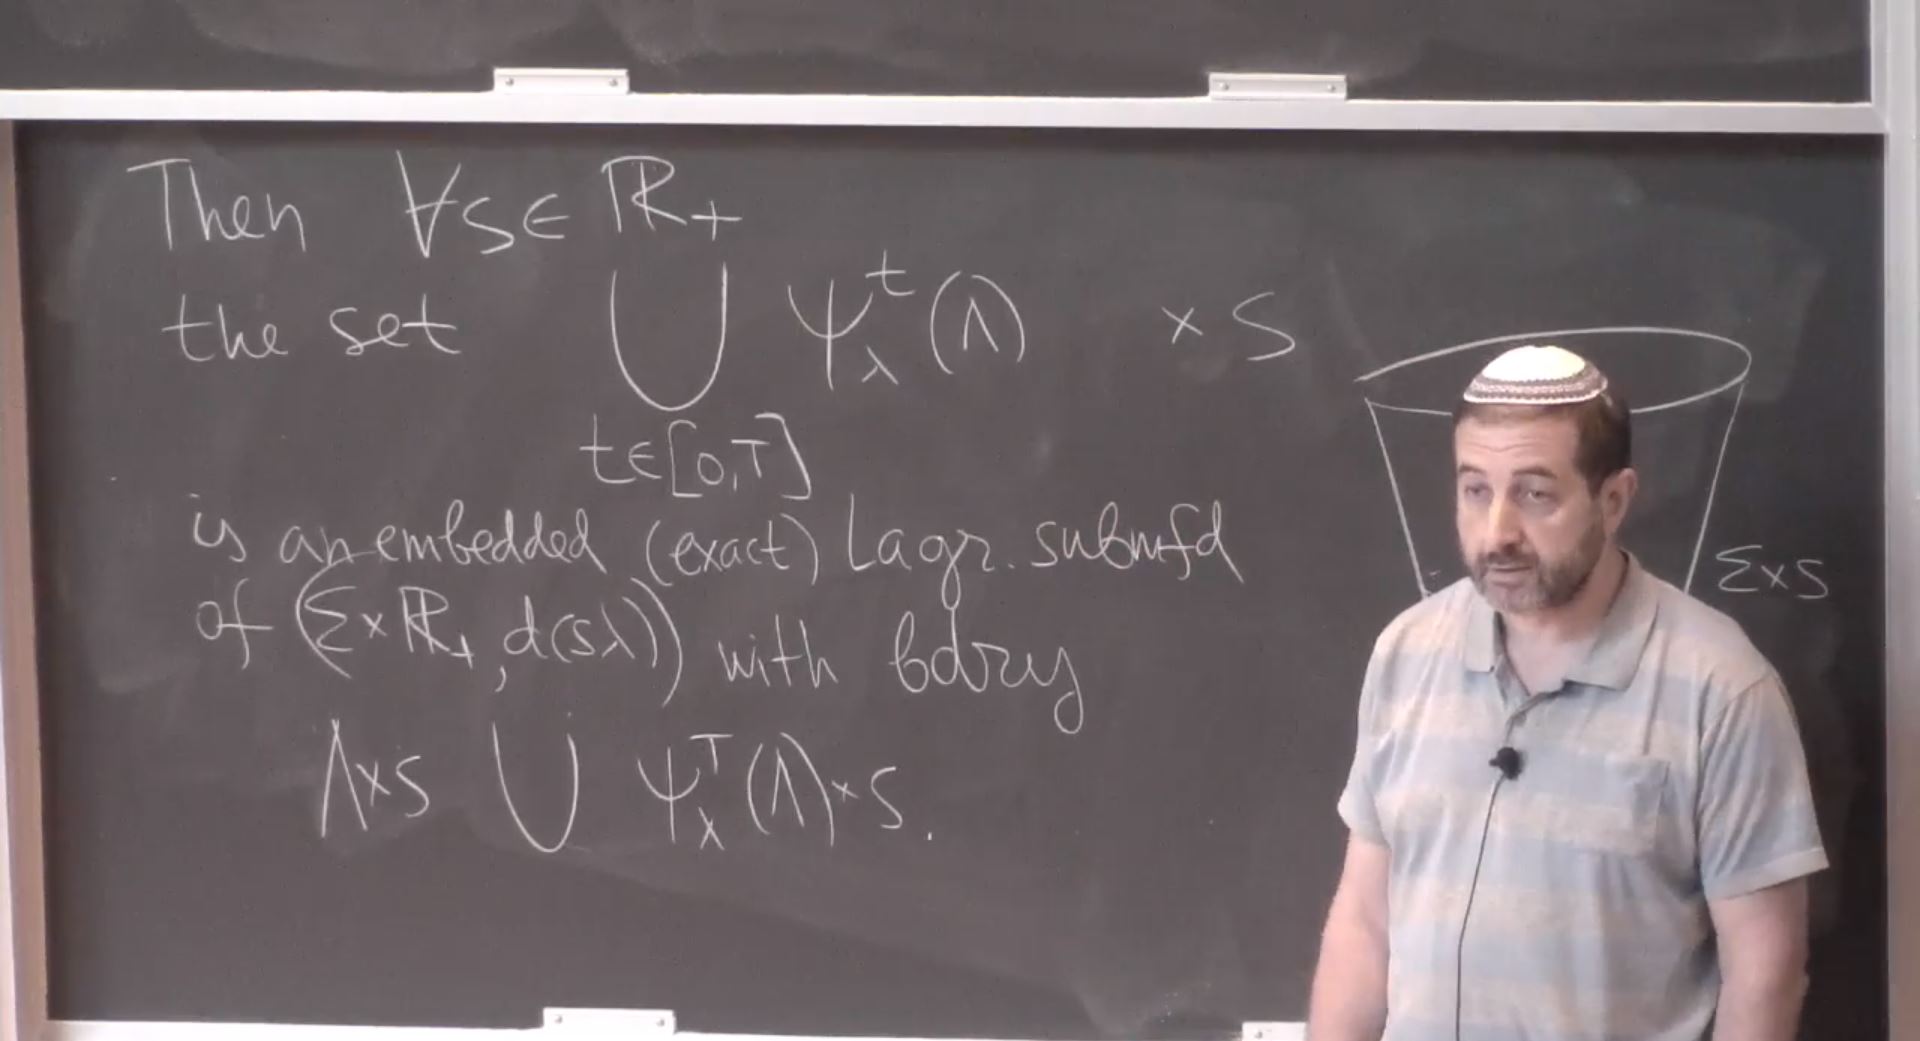 Then ∀s∈ ℝ₊
the set ⋃ ψ_λ^t(Λ) × s
t∈[0,T]
is an embedded (exact) Lagr. submfd
of (Σ×ℝ₊, d(sλ)) with bdry
Λ×s ∪ ψ_λ^T(Λ)×s.
Σ×s